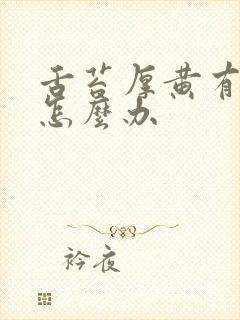 舌苔厚黄有
怎麼办
衿夜